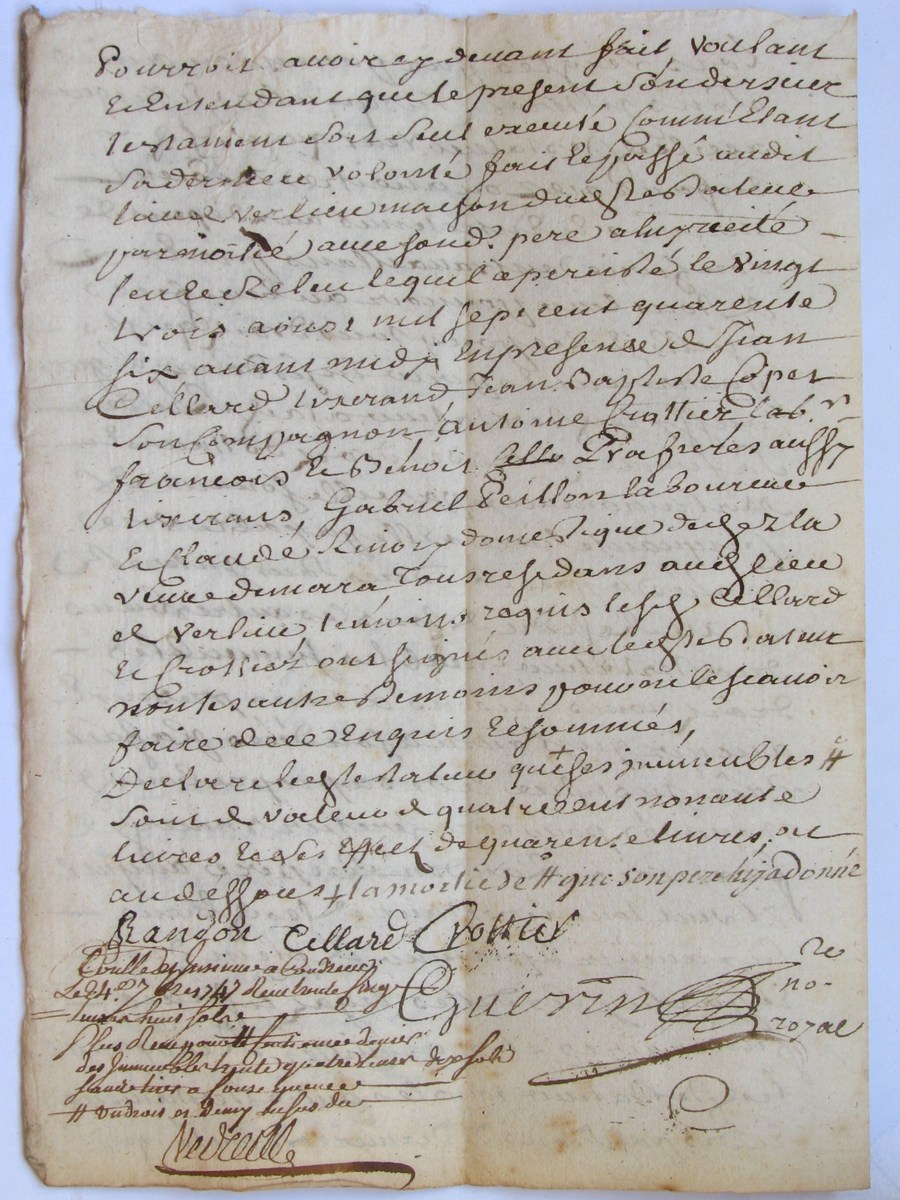 pourroit avoir cy devant fait voulant
et Entendant que le present son dernier
testament soit seul executé comme Etant
sa derniere volonté fait et passé audit
lieu de verlieu maison dud testateur
par moitié avec sond. pere a luy recité
leu et releu lequel a percisté le vingt
trois aoust mil sept cent quarente
six avant midy En presense de Jean
Cellard tixerand, Jean Baptiste Copet
son Compagnon, antoine Crottier lab.r
francois et Benoit frères aussy
tixerans, Gabriel Peillon laboureur
et Claude domestique de chez la
veuve dumara Tous residans aud lieu
de verlieu temoins requis lesd Cellard
et Crottier ont signés avec led testateur
non les autres temoins pour ne le scavoir
faire de ce Enquis et sommés,
Declare led testateur que ses immeubles #
sont de valeur de quatre cent nonante
livres et ses effets de quarente livres, ou
au dessous + la moitié de # que son pere luy a donné
Randon Cellard Crottier
Controllé et insinué a Condrieu
Le 4e 7bre 1747 Receu trente
livres huit sols
Plus Receu pour le centieme denier
des Immeubles trente quatre livres dix sols
sans tirer a consequence
# un droit et demy en sus du
Guerin
re
no-
royal